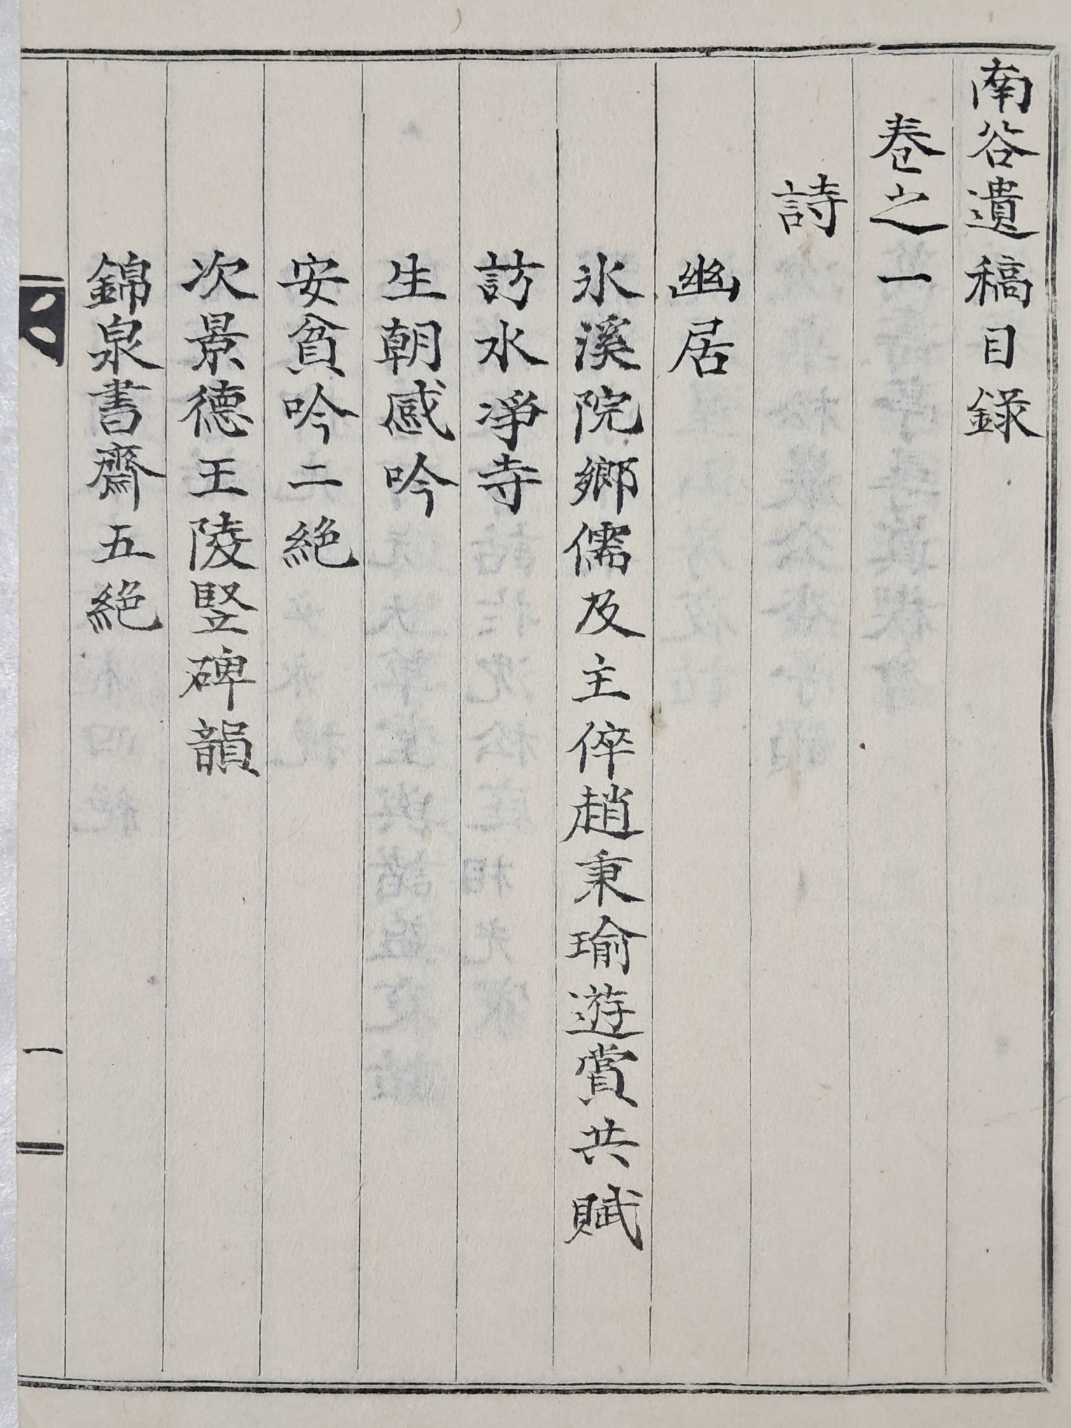 南谷遺稿目錄
卷之一
詩
幽居
氷溪院鄉儒及主倅趙秉瑜遊賞共賦
訪水淨寺
生朝感吟
安貧吟二絕
次景德王陵竪碑韻
錦泉書齋五絕
一